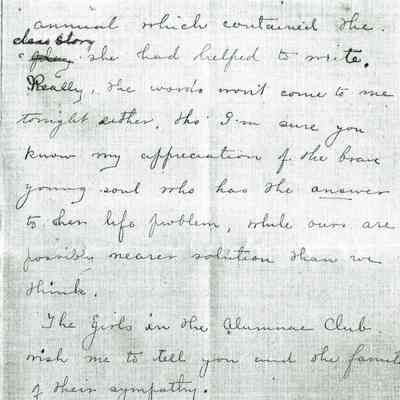 annual which contained the
class story
she had helped to write.
Really, the words won't come to me
tonight either, tho' I'm sure you
know my appreciation of the brave
young soul who has the answer
to her life problem, while ours are
possibly nearer solution than we
think.
The Girls in the Alumnae Club
wish me to tell you and the family
of their sympathy.